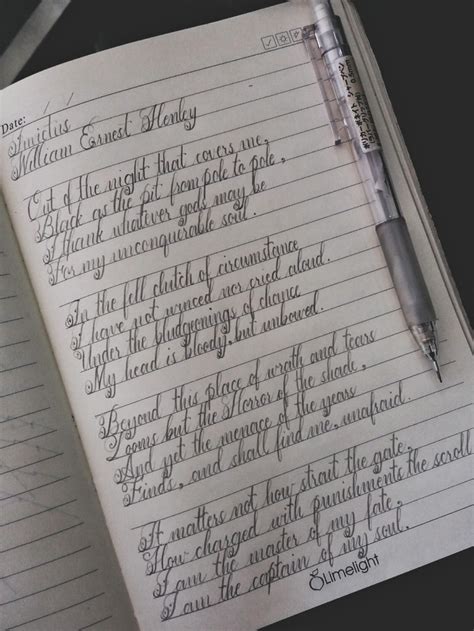 Date: / /
Invictus
William Ernest Henley
Out of the night that covers me,
Black as the pit from pole to pole,
I thank whatever gods may be
For my unconquerable soul.
In the fell clutch of circumstance
I have not winced nor cried aloud.
Under the bludgeonings of chance
My head is bloody, but unbowed.
Beyond this place of wrath and tears
Looms but the Horror of the shade,
And yet the menace of the years
Finds, and shall find me, unafraid.
It matters not how strait the gate,
How charged with punishments the scroll
I am the master of my fate,
I am the captain of my soul.
Limelight